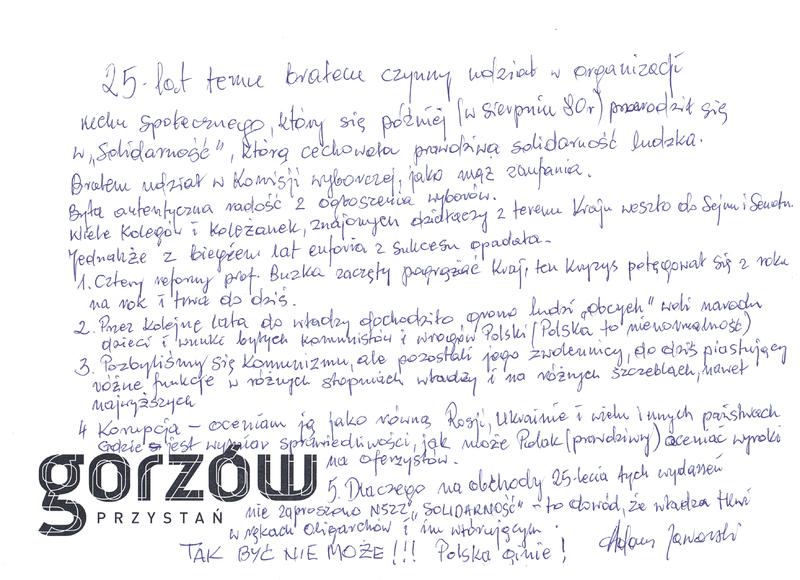 25-lat temu brałem czynny udział w organizacji
ruchu społecznego, który się później (w sierpniu 80r) przerodził się
w „Solidarność", którą cechowała prawdziwa solidarność ludzka.
Brałem udział w Komisji wyborczej, jako mąż zaufania.
Była autentyczna radość z ogłoszenia wyborów.
Wiele Kolegów i Koleżanek, znajomych działaczy z terenu Kraju weszło do Sejmu i Senatu.
Jednakże z biegiem lat euforia z sukcesu opadała.
1. Cztery reformy prof. Buzka zaczęły pogrążać Kraj, ten Kryzys potęgował się z roku
na rok i trwa do dziś.
2. Przez kolejne lata do władzy dochodziło grono ludzi „obcych" woli narodu
dzieci i wnuki byłych komunistów i wrogów Polski (Polska to nienormalność)
3. Pozbyliśmy się Komunizmu, ale pozostali jego zwolennicy, do dziś piastujący
różne funkcje w różnych stopniach władzy i na różnych szczeblach, nawet
najwyższych
4 Korupcja – oceniam ją jako równą Rosji, Ukrainie i wielu innych państwach
Gdzie jest wymiar sprawiedliwości, jak może Polak (prawdziwy) oceniać wyroki
na aferzystów.
5. Dlaczego na obchody 25-lecia tych wydarzeń
nie zaproszono NSZZ „SOLIDARNOŚĆ" – to dowód, że władza tkwi
w rękach Oligarchów i im wtórującym.
TAK BYĆ NIE MOŻE!!! Polska ginie!
Adam Jaworski
gorzów
PRZYSTAŃ